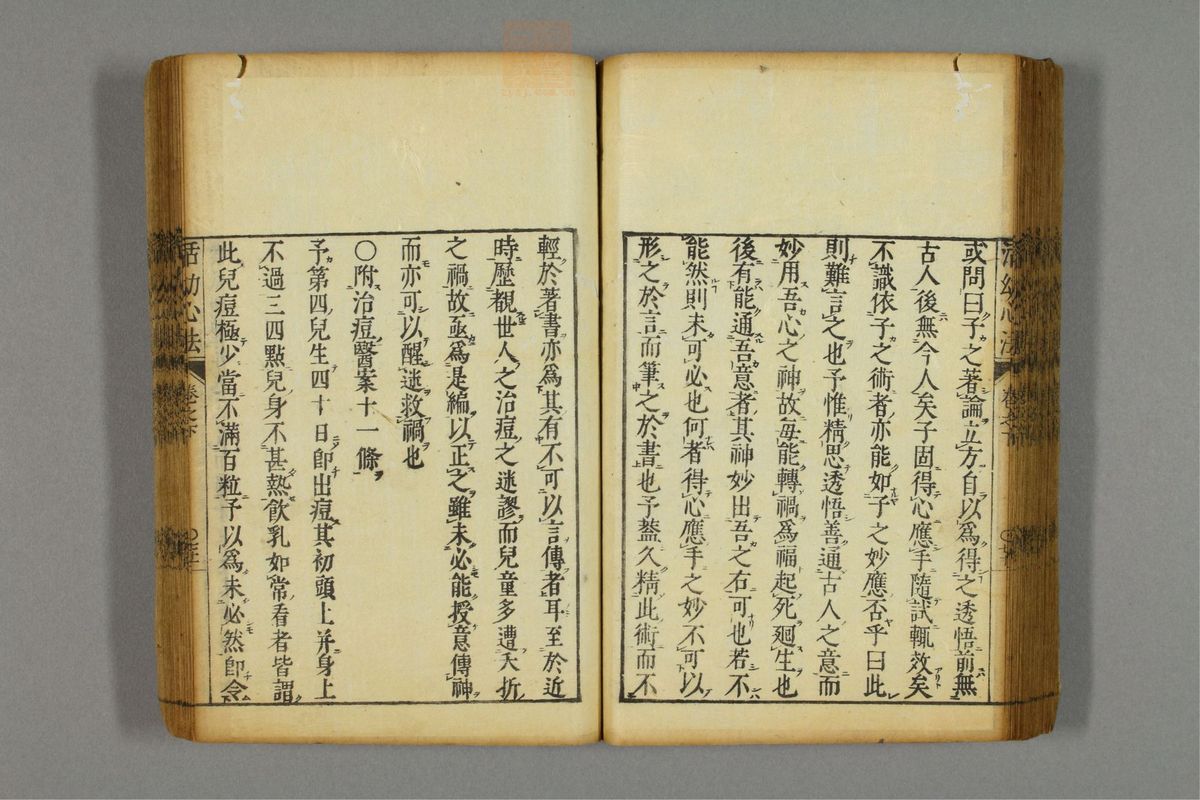 或問曰子之著論立方自以爲得之透悟前無
古人後無今人矣子固得心應手隨試輒效矣
不識依子之術者亦能如子之妙應否乎曰此
則難言之也予惟精思透悟善通古人之意而
妙用吾心之神故每能轉禍爲福起死廻生也
後有能通吾意者其神妙出吾之右可也若不
能然則未可必也何者得心應手之妙不可以
形之於言而筆之於書也予蓋久精此術而不
輕於著書亦爲其有不可以言傳者耳至於近
時歷觀世人之治痘之迷謬而兒童多遭夭折
之禍故亟爲是編以正之雖未必能授意傳神
而亦可以醒迷救禍也
〇附治痘醫案十一條
予第四兒生四十日即出痘其初頭上并身上
不過三四點兒身不甚熱飲乳如常看者皆謂
此兒痘極少當不滿百粒予以爲未必然即令
活幼心法 卷之下